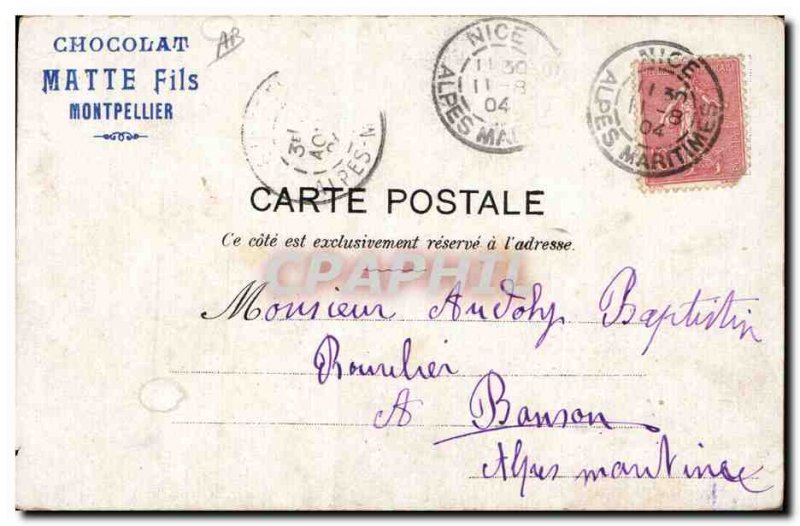 CHOCOLAT
MATTE Fils
MONTPELLIER
AB
NICE
11 30
11-8
04
ALPES MARITIMES
NICE
11 30
11-8
04
ALPES MARITIMES
3E
AOU
ALPES-M
CARTE POSTALE
Ce côté est exclusivement réservé à l'adresse.
CPAPHIL
Monsieur Audoly Baptistin
A Bonson
Alpes maritimes